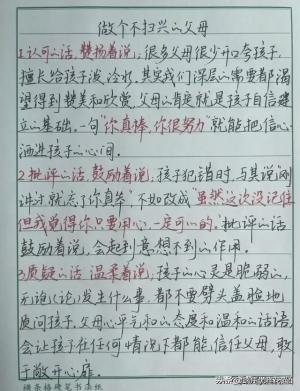 做个不扫兴的父母
1.认可的话,赞扬着说,很多父母很少开口夸孩子,
擅长给孩子泼冷水,其实我们深层的需要都渴
望得到赞美和欣赏,父母的肯定就是孩子自信建
立的基础。一句“你真棒,你很努力”就能把信心
洒进孩子的心间。
2.批评的话,鼓励着说,孩子犯错时,与其说“刚
讲过就忘了你真笨”不如改成“虽然这次没记住
但我觉得你只要用心,一定可以的。”批评的话
鼓励着说,会起到意想不到的作用。
3.质疑的话,温柔着说,孩子的心灵是脆弱的,
无论(论)发生什么事,都不要劈头盖脸地
质问孩子,父母心平气和的态度和温和的话语,
会让孩子在任何情况下都能信任父母,敢
于敞开心扉。